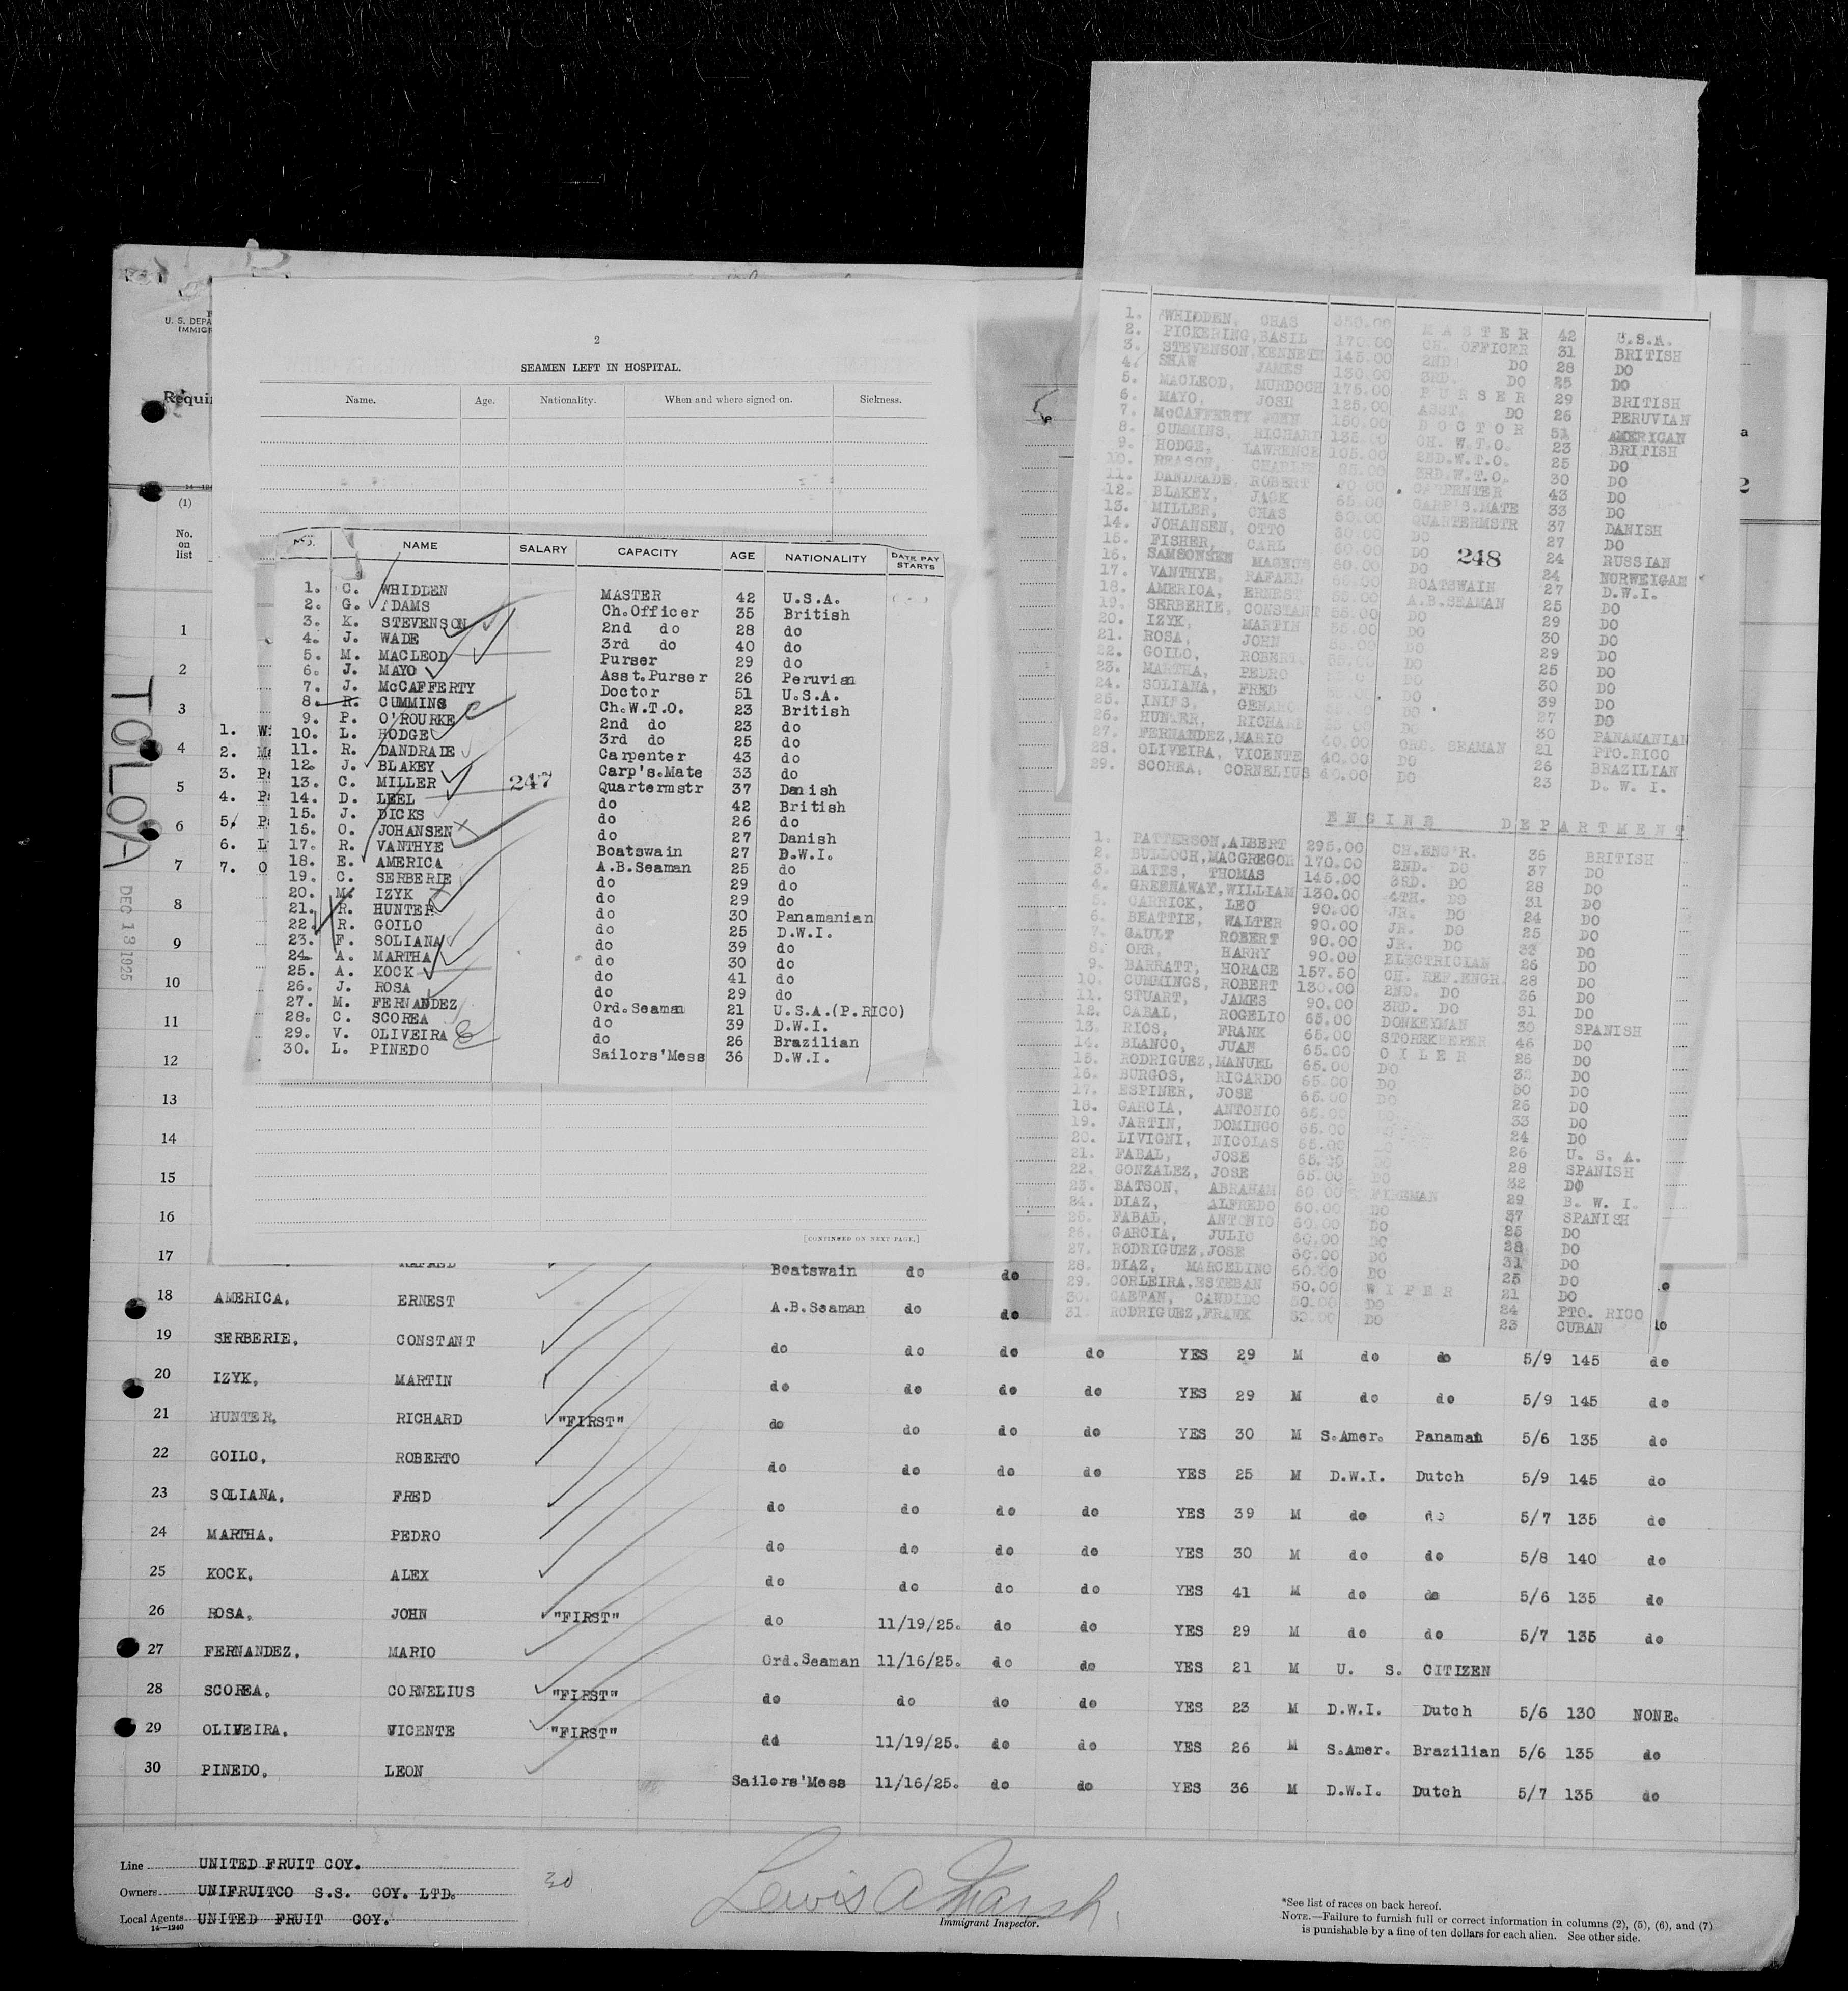 U. S. DEPA
IMMIG
Requi
(1)
No.
on
list
TOLOA
DEC 18 1925
1
2
3
4
5
6
7
8
9
10
11
12
13
14
15
16
17
1. W
2. M
3. P
4. P
5. P
6. L
7. O
2
SEAMEN LEFT IN HOSPITAL.
Name. Age. Nationality. When and where signed on. Sickness.
NO. NAME SALARY CAPACITY AGE NATIONALITY DATE PAY STARTS
1. C. WHIDDEN MASTER 42 U.S.A.
2. G. ADAMS Ch.Officer 35 British
3. K. STEVENSON 2nd do 28 do
4. J. WADE 3rd do 40 do
5. M. MACLEOD Purser 29 do
6. J. MAYO Asst.Purser 26 Peruvian
7. J. McCAFFERTY Doctor 51 U.S.A.
8. R. CUMMINS Ch.W.T.O. 23 British
9. P. O'ROURKE 2nd do 23 do
10. L. HODGE 3rd do 25 do
11. R. DANDRADE Carpenter 43 do
12. J. BLAKEY Carp's.Mate 33 do
13. C. MILLER 247 Quartermstr 37 Danish
14. D. LEEL do 42 British
15. J. DICKS do 26 do
16. O. JOHANSEN do 27 Danish
17. R. VANTHYE Boatswain 27 D.W.I.
18. E. AMERICA A.B.Seaman 25 do
19. C. SERBERIE do 29 do
20. M. IZYK do 29 do
21. R. HUNTER do 30 Panamanian
22. R. GOILO do 25 D.W.I.
23. F. SOLIANA do 39 do
24. A. MARTHA do 30 do
25. A. KOCK do 41 do
26. J. ROSA do 29 do
27. M. FERNANDEZ Ord.Seaman 21 U.S.A.(P.RICO)
28. C. SCOREA do 39 D.W.I.
29. V. OLIVEIRA do 26 Brazilian
30. L. PINEDO Sailors'Mess 36 D.W.I.
[CONTINUED ON NEXT PAGE.]
1. WHIDDEN, CHAS 350.00 MASTER 42 U.S.A.
2. PICKERING,BASIL 170.00 CH. OFFICER 31 BRITISH
3. STEVENSON,KENNETH 145.00 2ND DO 28 DO
4. SHAW JAMES 130.00 3RD. DO 25 DO
5. MACLEOD, MURDOCH 175.00 PURSER 29 BRITISH
6. MAYO, JOSE 125.00 ASST. DO 26 PERUVIAN
7. McCAFFERTY JOHN 150.00 DOCTOR 51 AMERICAN
8. CUMMINS, RICHARD 135.00 CH. W.T.O. 23 BRITISH
9. HODGE, LAWRENCE 105.00 2ND.W.T.O. 25 DO
10. REASON, CHARLES 85.00 3RD.W.T.O. 30 DO
11. DANDRADE, ROBERT CARPENTER 43 DO
12. BLAKEY, JACK 65.00 CARP'S.MATE 33 DO
13. MILLER, CHAS QUARTERMSTR 37 DANISH
14. JOHANSEN, OTTO DO 27 DO
15. FISHER, CARL 60.00 DO 248 24 RUSSIAN
16. SAMSONSEN MAGNUS DO 24 NORWEIGAN
17. VANTHYE, RAFAEL BOATSWAIN 27 D.W.I.
18. AMERICA, ERNEST A.B.SEAMAN 25 DO
19. SERBERIE, CONSTANT 55.00 DO 29 DO
20. IZYK, MARTIN 55.00 DO 30 DO
21. ROSA, JOHN DO 29 DO
22. GOILO, ROBERTO DO 25 DO
23. MARTHA, PEDRO DO 30 DO
24. SOLIANA, FRED DO 39 DO
25. GENARO DO 27 DO
26. HUNTER, RICHARD DO 30 PANAMANIAN
27. FERNANDEZ,MARIO 40.00 ORD. SEAMAN 21 PTO.RICO
28. OLIVEIRA, VICENTE 40.00 DO 26 BRAZILIAN
29. SCOREA, CORNELIUS 40.00 DO 23 D. W. I.
ENGINE DEPARTMENT
1. PATTERSON,ALBERT 295.00 CH.ENG'R. 36 BRITISH
2. BULLOCH,MACGREGOR 170.00 2ND. DO 37 DO
3. BATES, THOMAS 145.00 3RD. DO 28 DO
4. GREENAWAY,WILLIAM 130.00 4TH. DO 31 DO
5. CARRICK, LEO 90.00 JR. DO 24 DO
6. BEATTIE, WALTER 90.00 JR. DO 25 DO
7. GAULT ROBERT 90.00 JR. DO DO
8. ORR, HARRY 90.00 ELECTRICIAN 26 DO
9. BARRATT, HORACE 157.50 CH. REF.ENGR. 28 DO
10. CUMMINGS, ROBERT 130.00 2ND. DO 36 DO
11. STUART, JAMES 90.00 3RD. DO 31 DO
12. CABAL, ROGELIO 65.00 DONKEYMAN 30 SPANISH
13. RIOS, FRANK 65.00 STOREKEEPER 46 DO
14. BLANCO, JUAN 65.00 OILER 25 DO
15. RODRIGUEZ,MANUEL 65.00 DO 32 DO
16. BURGOS, RICARDO 65.00 DO 30 DO
17. ESPINER, JOSE 65.00 DO 26 DO
18. GARCIA, ANTONIO 65.00 33 DO
19. JARTIN, DOMINGO 65.00 24 DO
20. LIVIGNI, NICOLAS 65.00 26 U. S. A.
21. FABAL, JOSE 65.00 DO 28 SPANISH
22. GONZALEZ, JOSE 65.00 DO 32 DO
23. BATSON, ABRAHAM 60.00 FIREMAN 29 B. W. I.
24. DIAZ, ALFREDO 60.00 DO 37 SPANISH
25. FABAL, ANTONIO 60.00 DO 25 DO
26. GARCIA, JULIO 60.00 DO DO
27. RODRIGUEZ,JOSE 60.00 DO 31 DO
28. DIAZ, MARCELINO 60.00 DO 25 DO
29. CORLEIRA,ESTEBAN 50.00 WIPER 21 DO
30. GAETAN, CANDIDO 50.00 DO 24 PTO. RICO
31. RODRIGUEZ,FRANK DO 23 CUBAN
RAFAEL Boatswain do do
18 AMERICA, ERNEST A.B.Seaman do do
19 SERBERIE, CONSTANT do do do do YES 29 M do do 5/9 145 do
20 IZYK, MARTIN do do do do YES 29 M do do 5/9 145 do
21 HUNTER, RICHARD "FIRST" do do do do YES 30 M S.Amer. Panaman 5/6 135 do
22 GOILO, ROBERTO do do do do YES 25 M D.W.I. Dutch 5/9 145 do
23 SOLIANA, FRED do do do do YES 39 M do do 5/7 135 do
24 MARTHA, PEDRO do do do do YES 30 M do do 5/8 140 do
25 KOCK, ALEX do do do do YES 41 M do do 5/6 135 do
26 ROSA, JOHN "FIRST" do 11/19/25. do do YES 29 M do do 5/7 135 do
27 FERNANDEZ, MARIO Ord.Seaman 11/16/25. do do YES 21 M U. S. CITIZEN
28 SCOREA, CORNELIUS "FIRST" do do do do YES 23 M D.W.I. Dutch 5/6 130 NONE.
29 OLIVEIRA, VICENTE "FIRST" dd 11/19/25. do do YES 26 M S.Amer. Brazilian 5/6 135 do
30 PINEDO, LEON Sailors'Mess 11/16/25. do do YES 36 M D.W.I. Dutch 5/7 135 do
Line UNITED FRUIT COY.
Owners UNIFRUITCO S.S. COY. LTD.
Local Agents UNITED FRUIT COY.
14—1240
30
Lewis A Marsh.
Immigrant Inspector.
*See list of races on back hereof.
NOTE.—Failure to furnish full or correct information in columns (2), (5), (6), and (7)
is punishable by a fine of ten dollars for each alien. See other side.